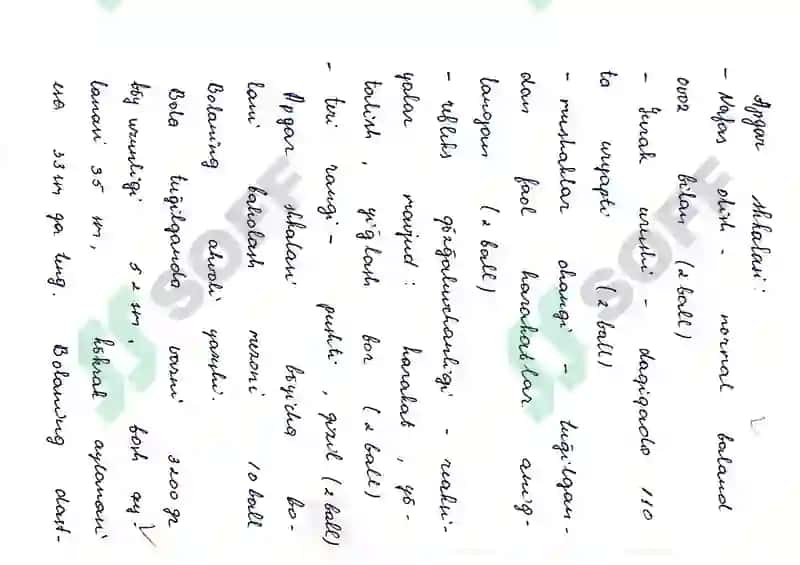 Apgar shkalasi:
- Nafas olish - normal baland
ovoz bilan (2 ball)
- Yurak urushi - daqiqada 110
ta uryapti (2 ball)
- mushaklar ohangi - tug'ilgan-
dan faol harakatlar aniq-
langan (2 ball)
- refleks qo'zg'aluvchanligi - reaksi-
yalar mavjud: harakat, yo'-
talish, yig'lash bor (2 ball)
- teri rangi - pushti, qizil (2 ball)
Apgar shkalasi bo'yicha bo-
lani baholash mezoni 10 ball
Bolaning ahvoli yaxshi.
Bola tug'ilganda vazni 3200 gr
bo'y uzunligi 52 sm, bosh ay
lanasi 35 sm, ko'krak aylanasi
esa 33 sm ga teng. Bolaning dast-
SOFF
SOFF